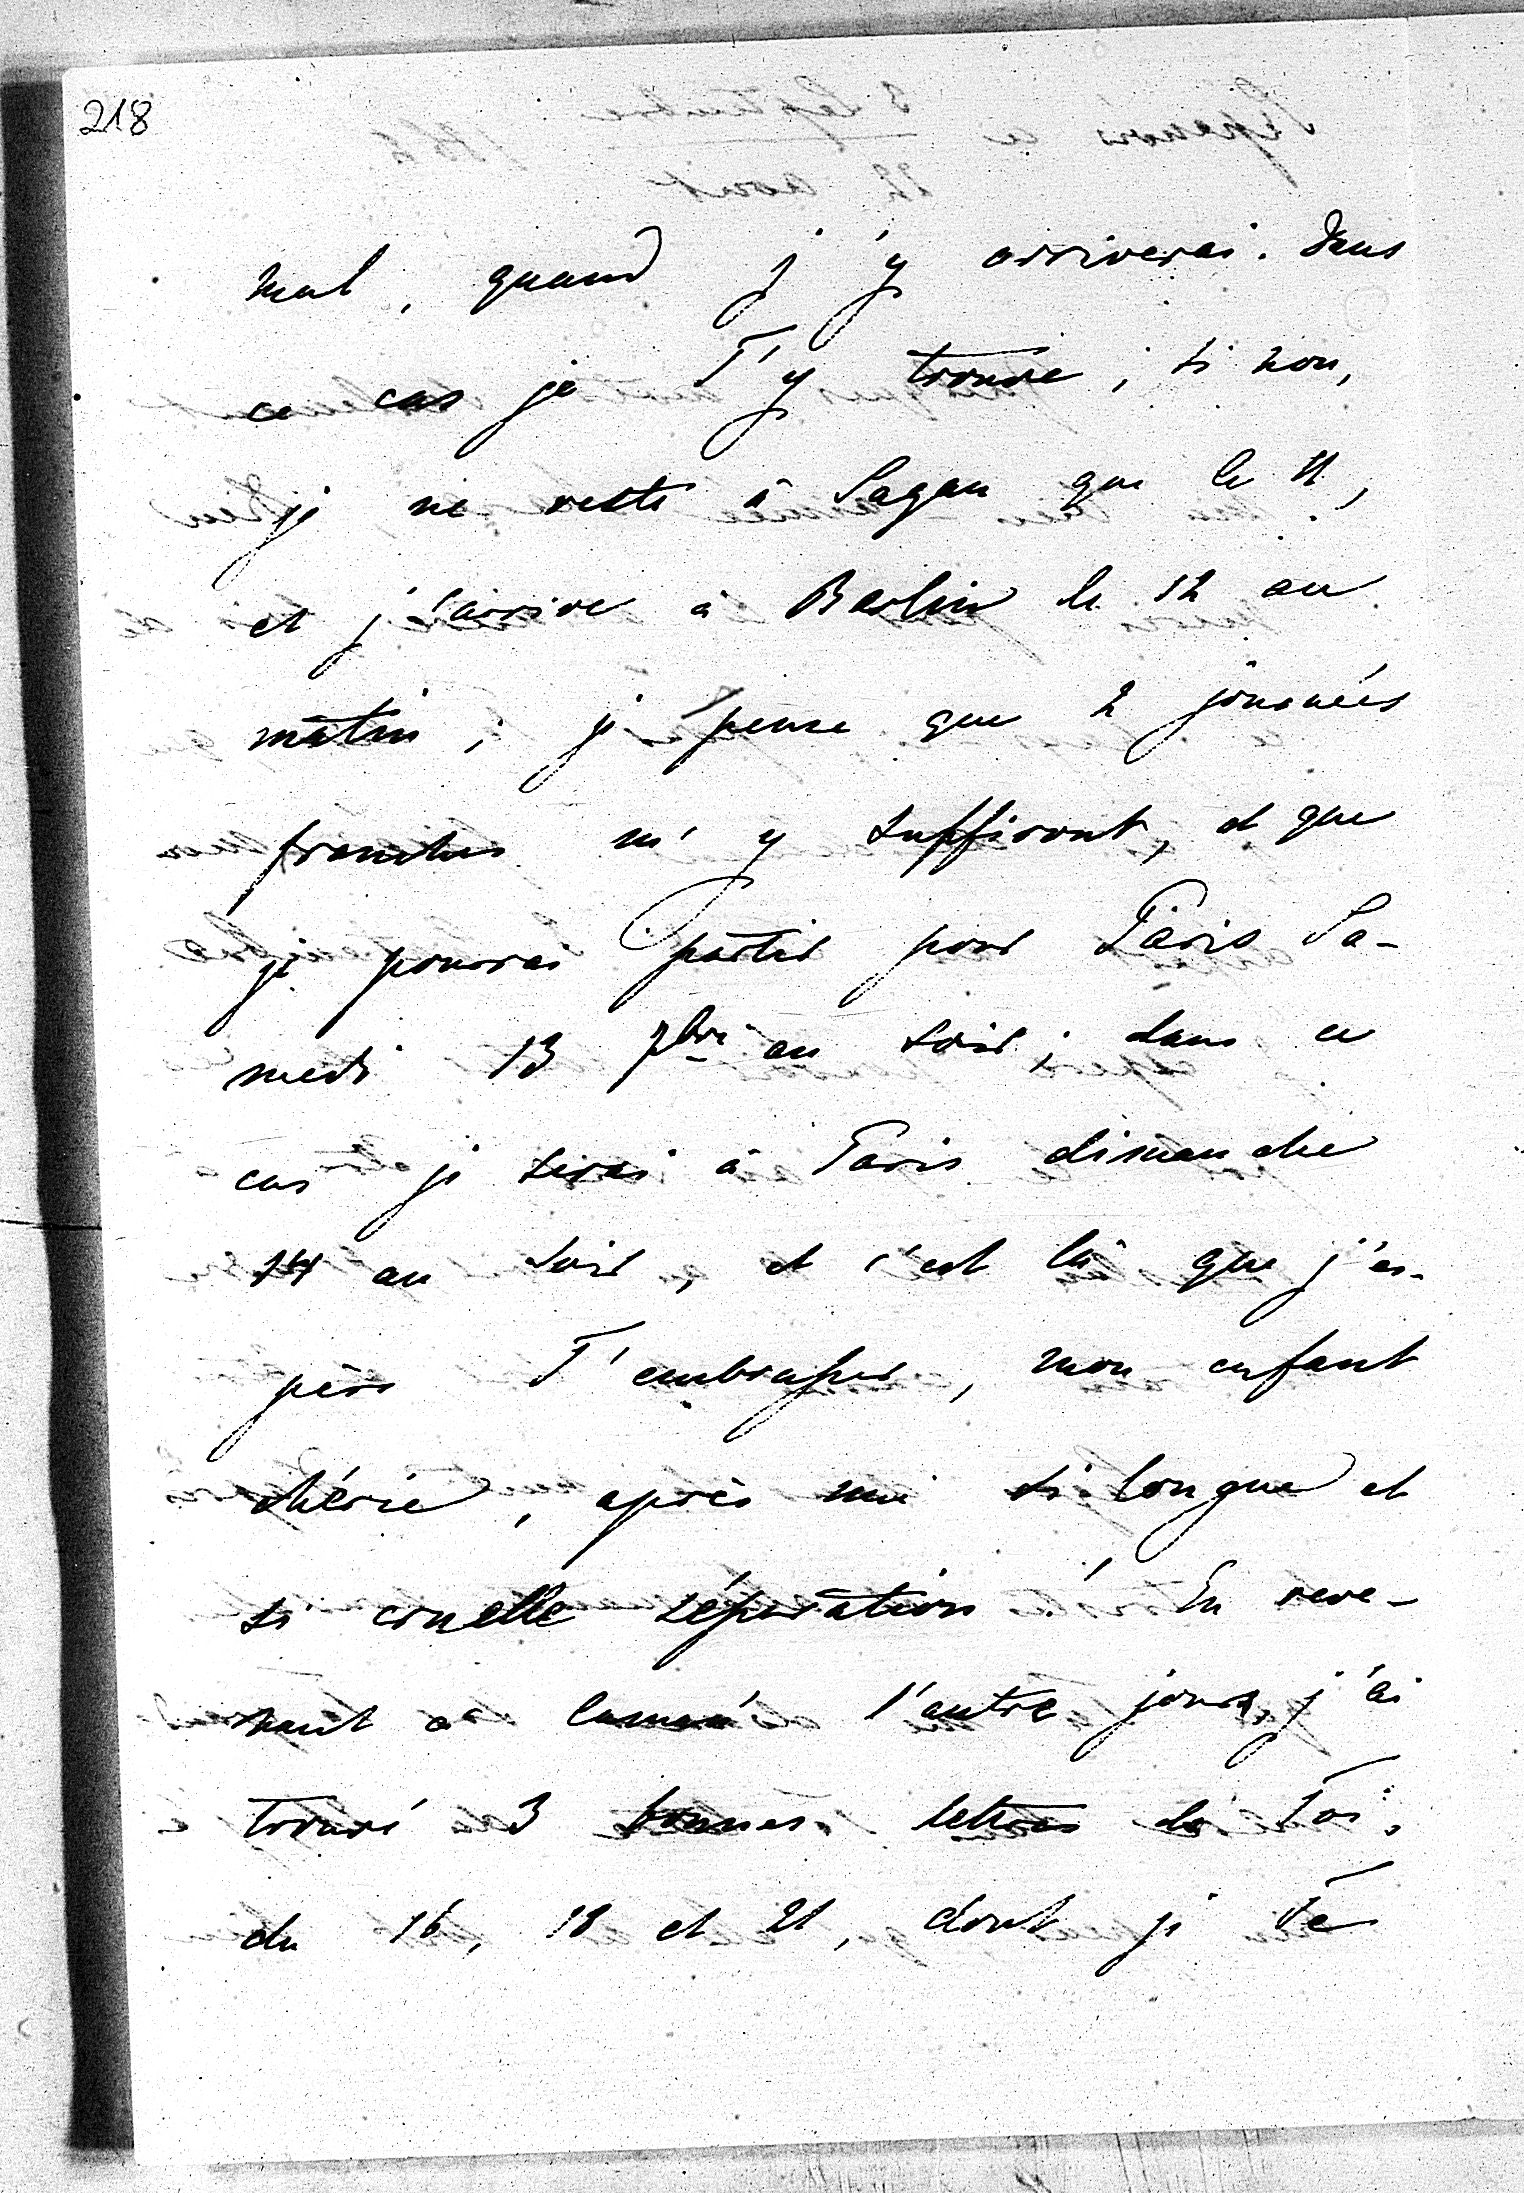 218
mal, quand j'y arriverai. Dans
ce cas je T'y trouve; si non,
je ne reste à Sagan que le 11,
et j'arrive à Berlin le 12 au
matin; je pense que 2 journées
franches m'y suffiront, et que
je pourrai partir pour Paris Sa-
medi 13 7bre au soir; dans ce
cas je serai à Paris dimanche
14 au soir, et c'est là que j'es-
père T'embrasser, mon enfant
chérie, après une si longue et
si cruelle séparation! En reve-
nant à l'autre jour, j'ai
trouvé 3 bonnes lettres de Toi,
du 16, 18 et 21, dont je Te